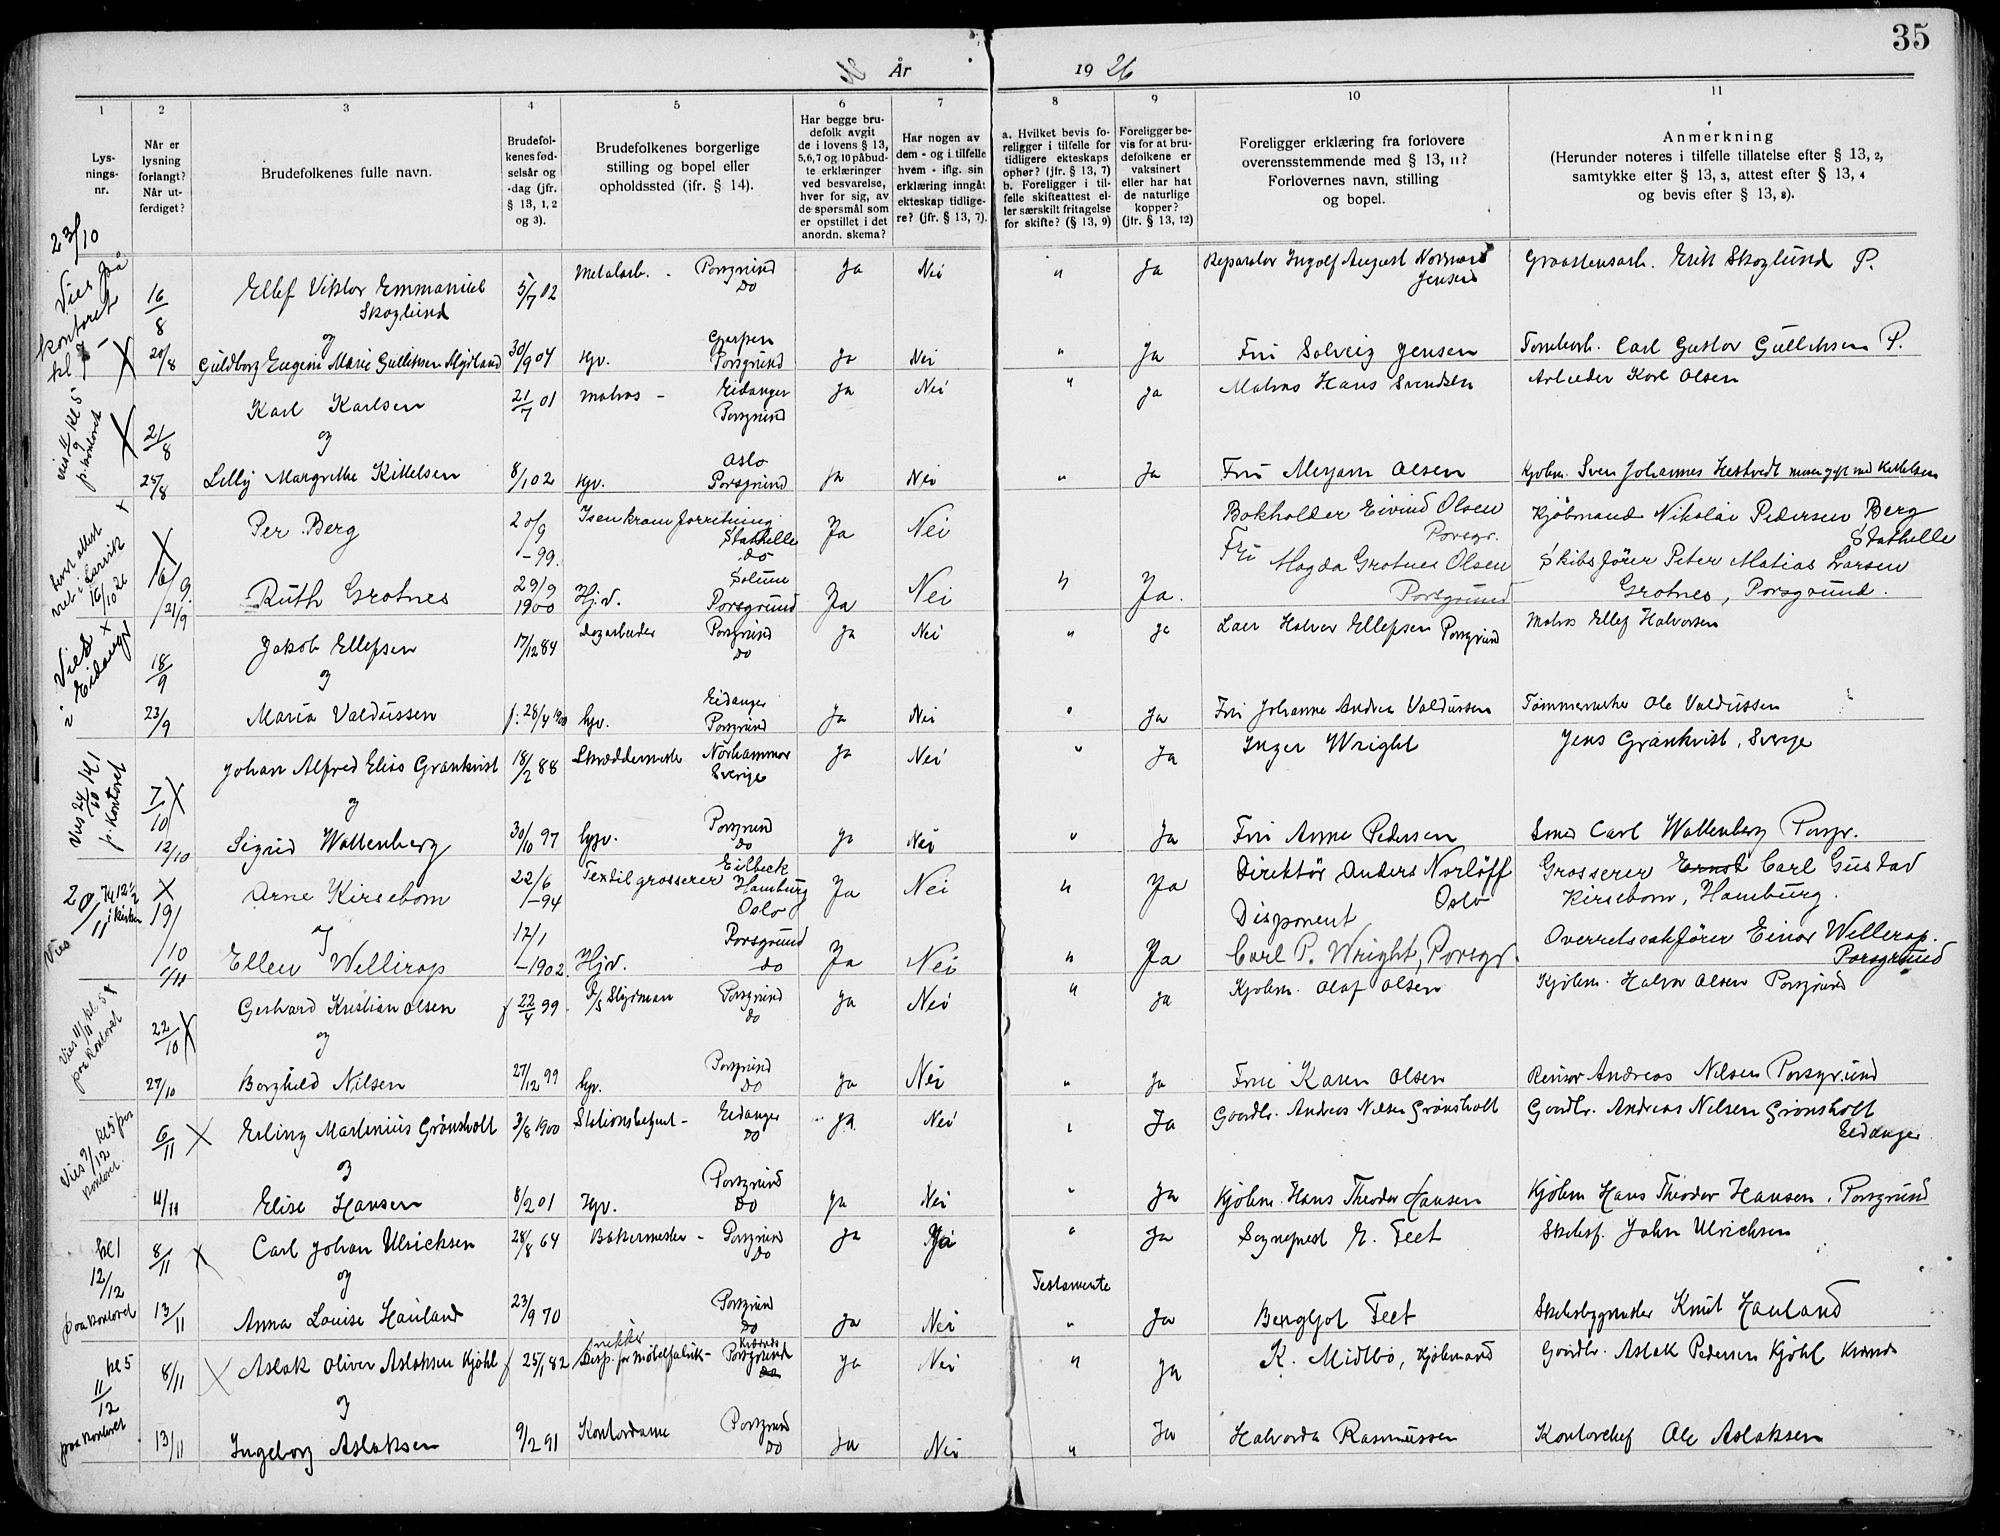 35
År 1926
1 2 3 4 5 6 7 8 9 10 11
Lys-
nings-
nr.
Når er
lysning
forlangt?
Når ut-
ferdiget?
Brudefolkenes fulle navn.
Brudefol-
kenes fød-
selsår og
-dag (jfr.
§ 13, 1, 2
og 3).
Brudefolkenes borgerlige
stilling og bopel eller
opholdssted (ifr. § 14).
Har begge bru-
defolk avgit
de i lovens § 13,
5,6,7 og 10 påbud-
te erklæringer
ved besvarelse,
hver for sig, av
de spørsmål som
er opstillet i det
anordn. skema?
Har nogen av
dem - og i tilfelle
hvem - iflg. sin
erklæring inngåt
ekteskap tidlige-
re? (jfr. § 13, 7).
a. Hvilket bevis fo-
religger i tilfelle for
tidligere ekteskaps
ophør? (jfr. § 13, 7)
b. Foreligger i til-
felle skifteattest el-
ler særskilt fritagelse
for skifte? (§ 13, 9)
Foreligger be-
vis for at bru-
defolkene er
vaksinert
eller har hat
de naturlige
kopper?
(jfr. § 13, 12)
Foreligger erklæring fra forlovere
overensstemmende med § 13, 11?
Forlovernes navn, stilling
og bopel.
Anmerkning
(Herunder noteres i tilfelle tillatelse efter § 13, 2,
samtykke efter § 13, 3, attest efter § 13, 4
og bevis efter § 13, 8).
23/10
Vies på
kontoret
kl 7
16/8 Ellef Viktor Emmanuel 5/7 02 Metalarb. - Porsgrund Ja Nei " Ja Reparatør Ingolf August Jensen Erik Skoglund P.
Skoglund do
og Gjerpen
20/8 Guldborg Eugeni Marie Gulliksen Myrland 30/9 04 Hv. Porsgrund Ja Nei " Ja Fru Solveig Jensen Carl Gustav Gulliksen P.
vies 11/9 kl 5
p. kontoret
Karl Karlsen 21/7 01 Matros - Eidanger Ja Nei " Ja Matros Hans Svendsen Arbeider Karl Olsen
Porsgrund
21/8 og
Oslo
25/8 Lilly Margrethe Kittelsen 8/1 02 Hv. Porsgrund Ja Nei " Ja Fru Olsen Kjøbm. Sven Johannes Hestvedt
viet i Larvik
16/10 26
Per Berg 20/9 Isenkramforretning Ja Nei Bokholder Eivind Olsen Kjøbmand Nikolai Pedersen Berg
-99. Stathelle Porsgr. Stathelle
do
16/9. Solum Fru Magda Grotnes Olsen Skibsfører Peter Matias Larsen
21/9 Ruth Grotnes 29/9 1900 Hj.v. Porsgrund Ja Nei " Ja. Porsgrund Grotnes, Porsgrund.
Vies
i Eidanger
18/9 Jakob Ellefsen 17/12 84 Porsgrund Ja Nei " Ja Halvor Ellefsen Porsgrund Matros Ellef Halvorsen
do
og
Eidanger
23/9 Maria Valdussen f. 28/4 1900 hv. Porsgrund Ja Nei " Ja Fru Johanne Andrea Valdussen Ole Valdussen
Vies 24/10 kl 1
p. kontoret
Johan Alfred Elias Grankvist 18/2 88 Skræddermester Norhammar Ja Nei " Ja Inger Wright Jens Grankvist, Sverge
Sverige
7/10 og
12/10 Sigrid Wallenberg 30/10 97 hv. Porsgrund Ja Nei " Ja Fru Anne Pedersen Smed Carl Wallenberg Porsgr.
do
Vies 20/11 kl 12 1/2
i kirken
Arne Kirsebom 22/6 -94 Textilgrosserer Eilbeck Ja Nei " Ja Direktør Anders Norløff Grosserer Ernst Carl Gustav
Hamburg Oslo Kirsebom, Hamburg.
Oslo
19/10 og 12/1 Porsgrund Disponent Overretssakfører Einar Wellerop.
1/11 Ellen Wellerop -1902. Hj.v. do Ja Nei " Ja Carl P. Wright, Porsgr. Porsgrund
Vies 11/11 kl. 5
paa kontoret
Gerhard Kristian Olsen f 22/4 99 Styrman Porsgrund Ja Nei " Ja Kjøbm. Olaf Olsen Kjøbm. Halvor Olsen Porsgrund
do
22/10 og
27/10 Borghild Nilsen 27/12 99 hv. Porsgrund Ja Nei " Ja Frue Karen Olsen Revisor Andreas Nilsen Porsgrund
do
Vies 9/12 kl 5 paa
kontoret.
6/11 Erling Martinius Grønsholt 3/8 1900 Stationsbetjent - Eidanger Ja Nei " Ja Gaardbr. Andreas Nilsen Grønsholt Gaardbr. Andreas Nilsen Grønsholt
do Eidanger
og
11/11 Elise Hansen 8/2 01 Hv. Porsgrund Ja Nei " Ja Kjøbm. Hans Theodor Hansen Kjøbm Hans Theodor Hansen, Porsgrund
do
kl 1
12/12
paa kontoret
8/11 Carl Johan Ulricksen 28/8 64 Bakermester - Porsgrund Ja Ja " Ja Sogneprest E. Feet Skibsf. John Ulrichsen
do
og Testamente
13/11 Anna Louise Hauland 23/9 70 Porsgrund Ja Nei " Ja Bergljot Feet Skibsbygmester Knut Hauland
do
kl 5
11/12
paa kontoret
8/11 Aslak Oliver Aslaksen Kjøhl f 25/1 82 Disp. for Møbelfabrik - Porsgrund Ja Nei " Ja K. Midtbø, Kjøbmand Gaardbr. Aslak Pedersen Kjøhl
og
13/11 Ingeborg Aslaksen 9/2 91 Kontordame Porsgrund Ja Nei " Ja Halvorda Rasmussen Kontorchef Ole Aslaksen
do